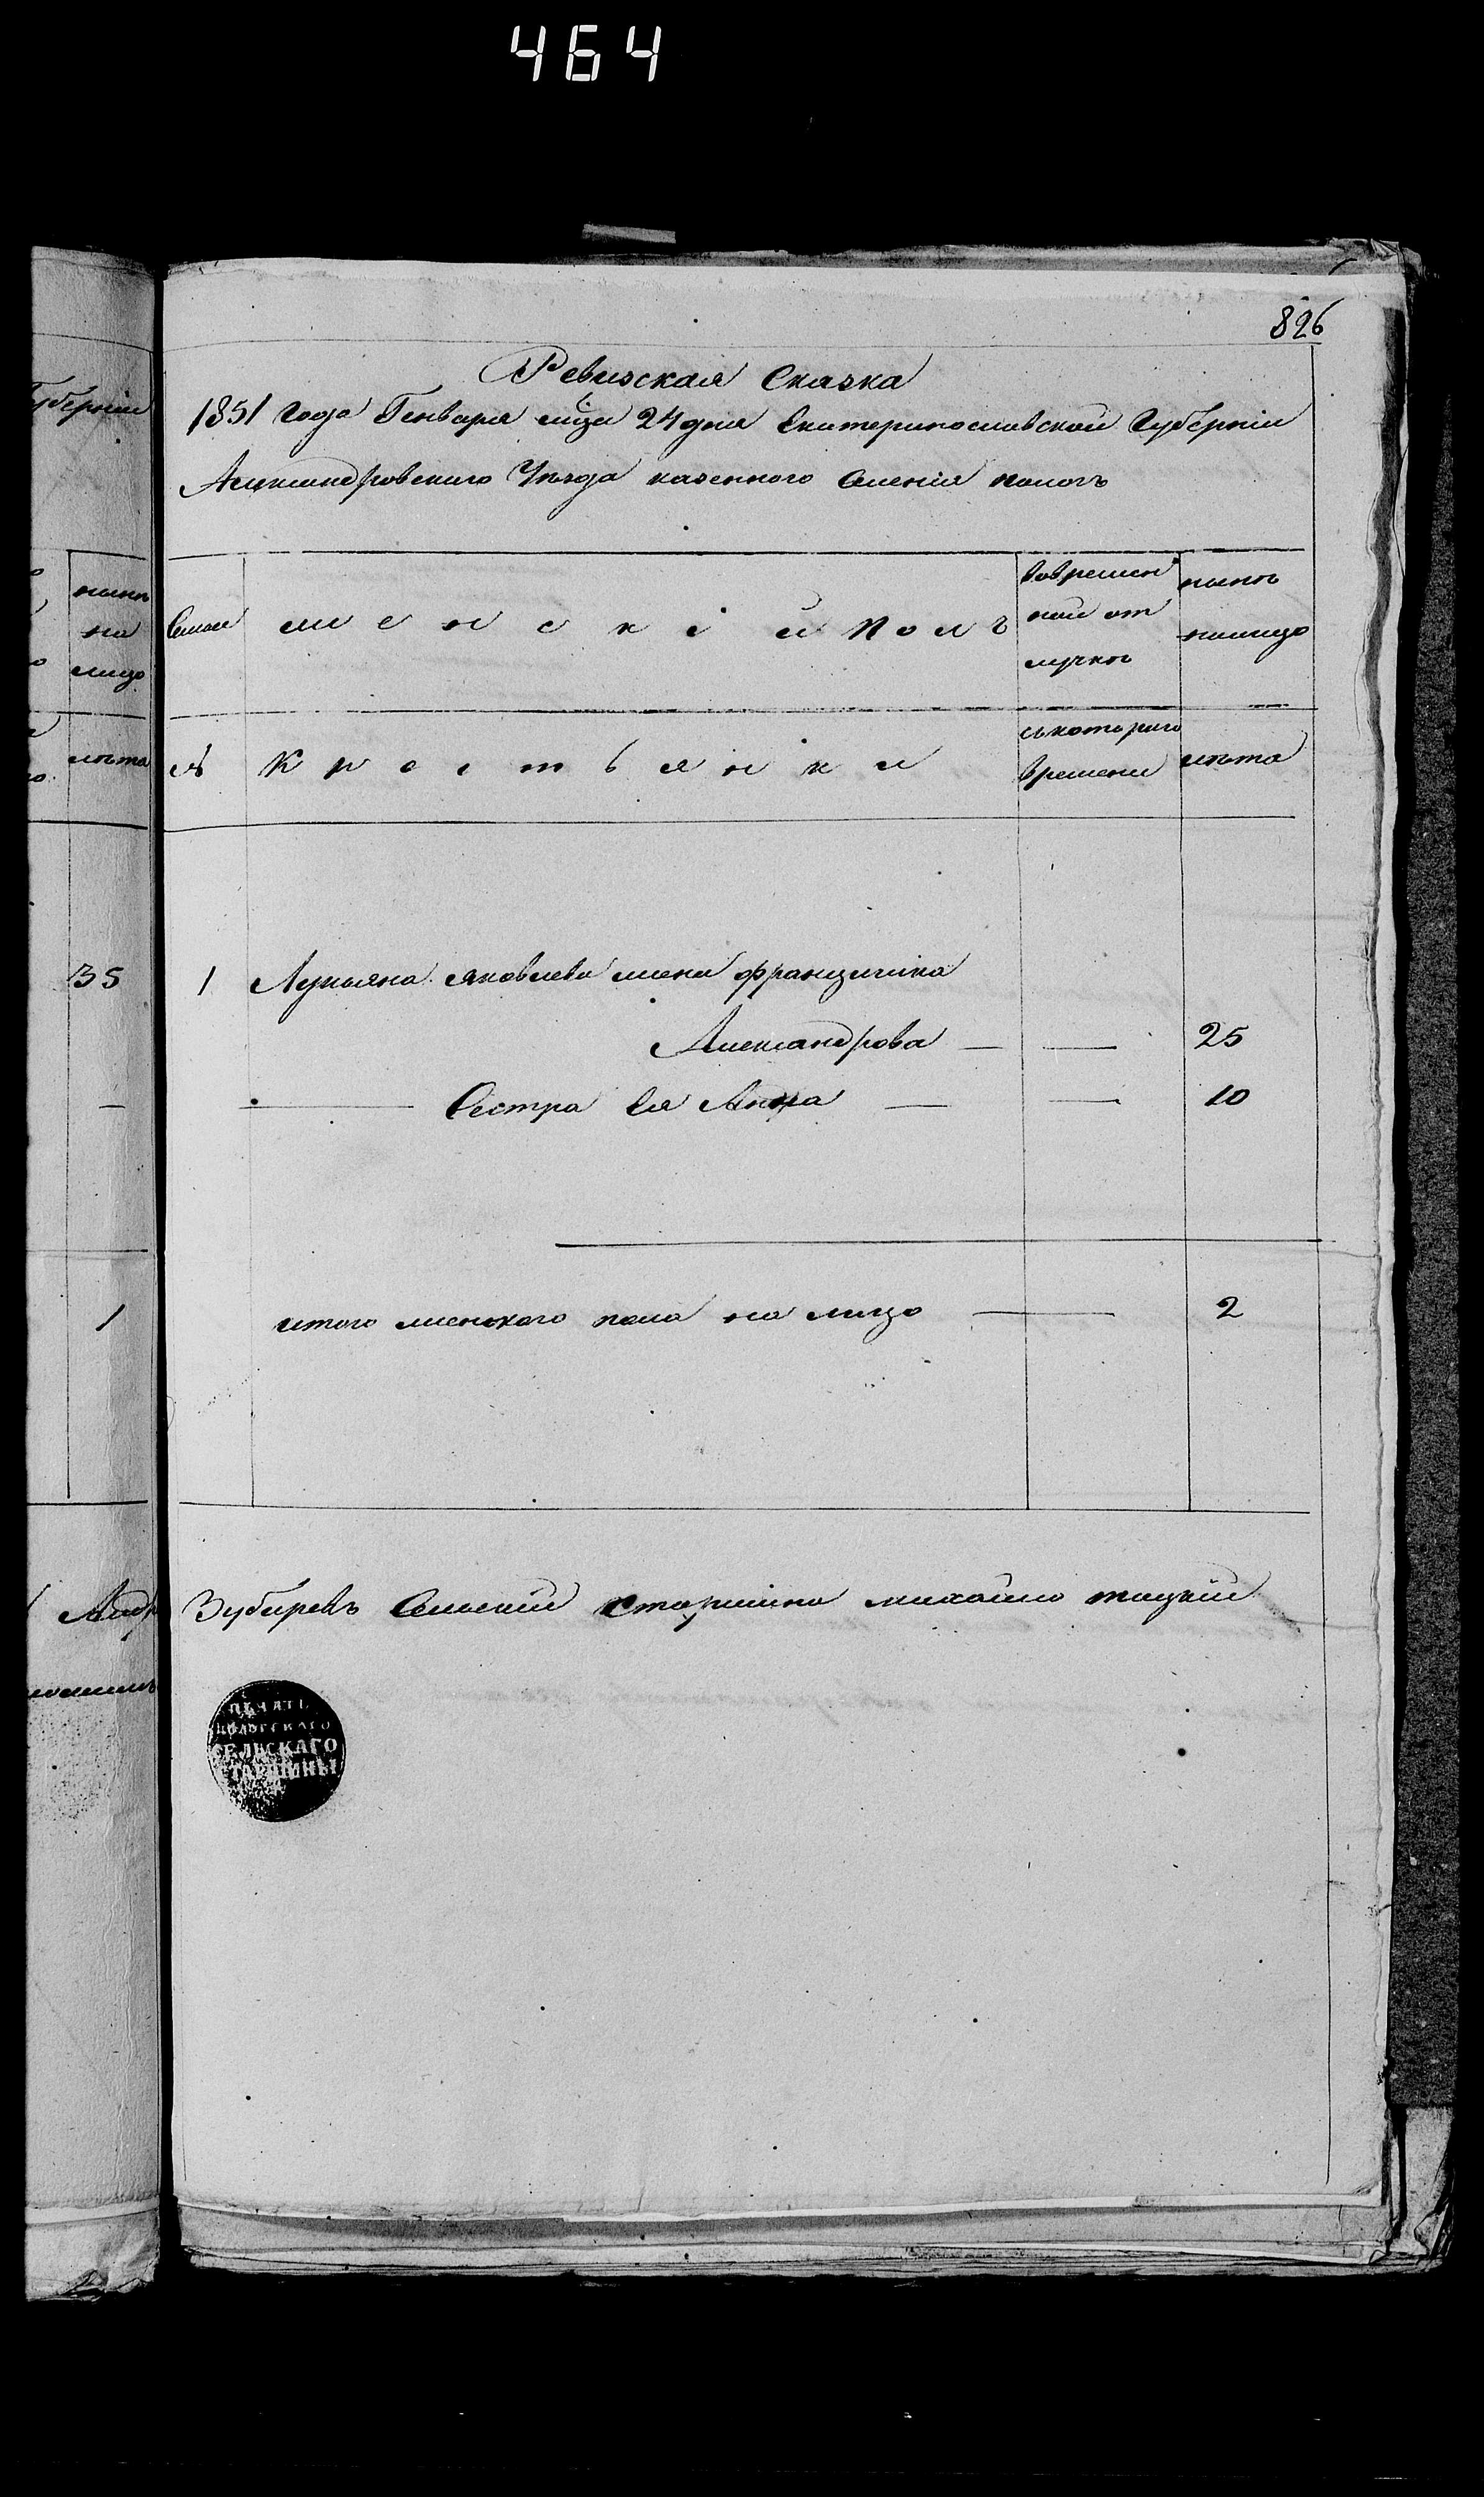 464
826
Ревизская Сказка
1851 года Генваря мца 24 дня Екатеринославской Губерніи
Александровскаго Уезда казенного Селенія пологъ
Губерніи
ныне
на
лицо
лета
Семьи
женскій полъ
вовремен
ной от
лучке
ныне
налицо
№
Крестьянки
скотораго
времени
лета
35
1 Лукьяна яковлева жена францишка
Александрова — — 25
— Сестра Ея Анна — — 10
1
итого женского пола на лицо — 2
Зубиревъ Сельскій старшина михайло тицкій
ПЕЧАТЬ
ПОЛОГСКАГО
СЕЛЬСКАГО
СТАРШИНЫ